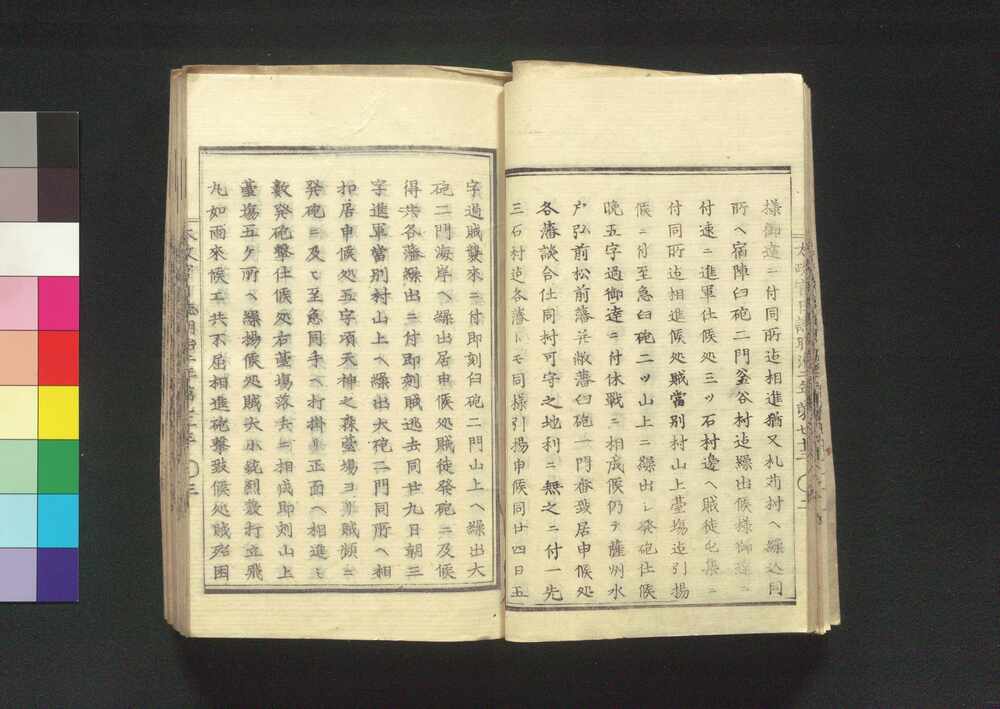 様御達ニ付同所迠相進猶又札苅村ヘ繰込同
所ヘ宿陣臼砲二門釜谷村迠繰出候様御達ニ
付速ニ進軍仕候処三ツ石村邊ヘ賊徒屯集ニ
付同所迠相進候処賊當別村山上䑓塲迠引揚
候ニ付至急臼砲二ツ山上ニ繰出シ発砲仕候
晩五字過御達ニ付休戦ニ相成候仍テ薩州水
戸弘前松前藩并敝藩臼砲一門番致居申候処
各藩談合仕同村可守之地利ニ無之ニ付一先
三石村迠各藩トモ同様引揚申候同廿四日五
字過賊襲来ニ付即刻臼砲二門山上ヘ繰出大
砲二門海岸ヘ繰出居申候処賊徒発砲ニ及候
得共各藩繰出ニ付即刻賊逃去同廿九日朝三
字進軍當別村山上ヘ繰出大砲二門同所ヘ相
扣居申候処五字頃天神之森䑓場ヨリ賊頻ニ
発砲ニ及ヒ至急同手ヘ打掛リ正面ヘ相進ミ
数発砲撃仕候処右䑓場落去ニ相成即刻山上
䑓塲五ケ所ヘ繰揚候処賊大小銃烈敷打立飛
丸如雨来候エ共不屈相進砲撃致候処賊殆困
太政官日誌明治二年第七十三 〇二